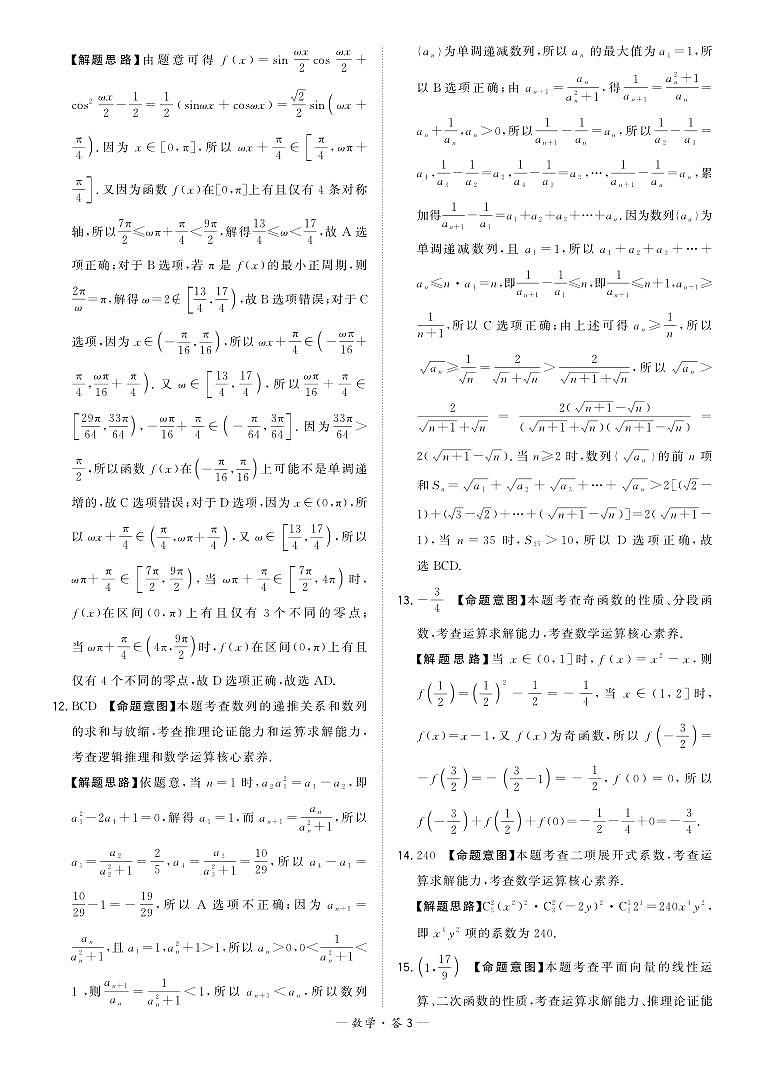 【解题思路】由题意可得 f(x)=sin ωx/2 cos ωx/2+
cos² ωx/2−1/2=1/2(sinωx+cosωx)=√2/2 sin(ωx+
π/4).因为 x∈[0,π],所以 ωx+π/4∈[π/4,ωπ+
π/4].又因为函数 f(x)在[0,π]上有且仅有 4 条对称
轴,所以7π/2≤ωπ+π/4<9π/2,解得13/4≤ω<17/4,故 A 选
项正确;对于 B 选项,若 π 是 f(x)的最小正周期,则
2π/ω=π,解得 ω=2∉[13/4,17/4),故 B 选项错误;对于 C
选项,因为 x∈(−π/16,π/16),所以 ωx+π/4∈(−ωπ/16+
π/4,ωπ/16+π/4).又 ω∈[13/4,17/4),所以ωπ/16+π/4∈
[29π/64,33π/64),−ωπ/16+π/4∈(−π/64,3π/64].因为33π/64>
π/2,所以函数 f(x)在(−π/16,π/16)上可能不是单调递
增的,故 C 选项错误;对于 D 选项,因为 x∈(0,π),所
以 ωx+π/4∈(π/4,ωπ+π/4),又 ω∈[13/4,17/4),所以
ωπ+π/4∈[7π/2,9π/2),当 ωπ+π/4∈[7π/2,4π)时,
f(x)在区间(0,π)上有且仅有 3 个不同的零点;
当 ωπ+π/4∈(4π,9π/2)时,f(x)在区间(0,π)上有且
仅有 4 个不同的零点,故 D 选项正确,故选 AD.
12. BCD 【命题意图】本题考查数列的递推关系和数列
的求和与放缩,考查推理论证能力和运算求解能力,
考查逻辑推理和数学运算核心素养.
【解题思路】依题意,当 n=1 时,a₂a₁²=a₁−a₂,即
a₁²−2a₁+1=0,解得 a₁=1,而 aₙ₊₁=aₙ/(aₙ²+1),所以
a₃=a₂/(a₂²+1)=2/5,a₄=a₃/(a₃²+1)=10/29,所以 a₄−a₁=
10/29−1=−19/29,所以 A 选项不正确;因为 aₙ₊₁=
aₙ/(aₙ²+1),且 a₁=1,aₙ²+1>1,所以 aₙ>0,0<1/(aₙ²+1)<
1,则aₙ₊₁/aₙ=1/(aₙ²+1)<1,所以 aₙ₊₁<aₙ,所以数列
{aₙ}为单调递减数列,所以 aₙ 的最大值为 a₁=1,所
以 B 选项正确;由 aₙ₊₁=aₙ/(aₙ²+1),得1/aₙ₊₁=(aₙ²+1)/aₙ=
aₙ+1/aₙ,aₙ>0,所以1/aₙ₊₁−1/aₙ=aₙ,所以1/a₂−1/a₁=
a₁,1/a₃−1/a₂=a₂,1/a₄−1/a₃=a₃,…,1/aₙ₊₁−1/aₙ=aₙ,累
加得1/aₙ₊₁−1/a₁=a₁+a₂+a₃+…+aₙ.因为数列{aₙ}为
单调递减数列,且 a₁=1,所以 a₁+a₂+a₃+…+
aₙ≤n·a₁=n,即1/aₙ₊₁−1/a₁≤n,即1/aₙ₊₁≤n+1,aₙ₊₁≥
1/(n+1),所以 C 选项正确;由上述可得 aₙ≥1/n,所以
√aₙ≥1/√n=2/(√n+√n)>2/(√(n+1)+√n),所以 √aₙ>
2/(√(n+1)+√n)=2(√(n+1)−√n)/((√(n+1)+√n)(√(n+1)−√n))=
2(√(n+1)−√n).当 n≥2 时,数列{√aₙ}的前 n 项
和 Sₙ=√a₁+√a₂+√a₃+…+√aₙ>2[(√2−
1)+(√3−√2)+…+(√(n+1)−√n)]=2(√(n+1)−
1),当 n=35 时,S₃₅>10,所以 D 选项正确,故
选 BCD.
13. −3/4 【命题意图】本题考查奇函数的性质、分段函
数,考查运算求解能力,考查数学运算核心素养.
【解题思路】当 x∈(0,1]时,f(x)=x²−x,则
f(1/2)=(1/2)²−1/2=−1/4,当 x∈(1,2]时,
f(x)=x−1,又 f(x)为奇函数,所以 f(−3/2)=
−f(3/2)=−(3/2−1)=−1/2,f(0)=0,所以
f(−3/2)+f(1/2)+f(0)=−1/2−1/4+0=−3/4.
14. 240 【命题意图】本题考查二项展开式系数,考查运
算求解能力,考查数学运算核心素养.
【解题思路】C₅²(x²)²·C₃²(−2y)²·C₁¹2¹=240x⁴y²,
即 x⁴y² 项的系数为 240.
15. (1,17/9) 【命题意图】本题考查平面向量的线性运
算、二次函数的性质,考查运算求解能力、推理论证能
— 数学·答 3 —